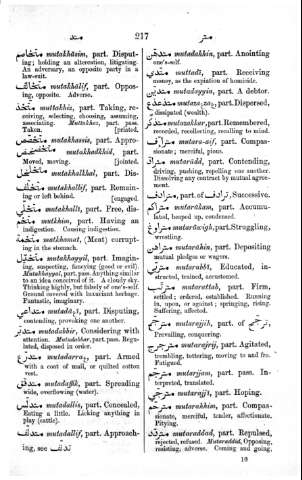 متد 217 متر
متخاصم mutakhāsim, part. Disput-
ing; holding an altercation, litigating.
An adversary, an opposite party in a
law-suit.
متخالف mutakhālif, part. Oppos-
ing, opposite. Adverse.
متخذ muttakhiz, part. Taking, re-
ceiving, selecting, choosing, assuming,
associating. Muttakhaz, part. pass.
Taken. [printed.
mutakhassis, part. Appro-
mutakhadkhid, part.
Moved, moving. [jointed.
mutakhalkhal, part. Dis-
متخلف mutakhallif, part. Remain-
ing or left behind. [engaged.
mutakhallī, part. Free, dis-
متخم mutkhim, part. Having an
indigestion. Causing indigestion.
متخمة matkhomat, (Meat) corrupt-
ing in the stomach.
متخيل mutakhayyil, part. Imagin-
ing, suspecting, fancying (good or evil).
Mutakhayyal, part. pass. Anything similar
to an idea conceived of it. A cloudy sky.
Thinking highly, but falsely of one's-self.
Ground covered with luxuriant herbage.
Fantastic, imaginary.
متداعي mutadāʻī, part. Disputing,
contending, provoking one another.
متدبر mutadabbir, Considering with
attention. Mutadabbar, part. pass. Regu-
lated, disposed in order.
متدرع mutadarraʻ, part. Armed
with a coat of mail, or quilted cotton
vest.
متدفق mutadaffik, part. Spreading
wide, overflowing (water).
mutadallis, part. Concealed,
Eating a little. Licking anything in
play (cattle).
متدلف mutadallif, part. Approach-
ing, see تدلف
متدهن mutadakhin, part. Anointing
one's-self.
متدي muttadī, part. Receiving
money, as the expiation of homicide.
متدين mutadayyin, part. A debtor.
متذعذع part. Dispersed,
dissipated (wealth).
متذكر mutazakkar, part. Remembered,
recorded, recollecting, recalling to mind.
مترائف mutarā-if, part. Compas-
sionate; merciful, pious.
متراد mutarādd, part. Contending,
driving, pushing, repelling one another.
Dissolving any contract by mutual agree-
ment.
مترادف, part. of ترادف, Successive.
متراكم mutarākam, part. Accumu-
lated, heaped up, condensed.
part. Struggling,
wrestling.
متراهن mutarāhin, part. Depositing
mutual pledges or wagers.
متربي mutarabbī, Educated, in-
structed, trained, accustomed.
مترتب mutarattab, part. Firm,
settled; ordered, established. Running
in, upon, or against; springing, rising.
Suffering, affected.
مترجح mutarajjih, part. of ترجح,
Prevailing, conquering.
مترجرج mutarajrij, part. Agitated,
trembling, tottering, moving to and fro.
Fatigued.
مترجم mutarjjam, part. pass. In-
terpreted, translated.
مترجي mutarajjī, part. Hoping.
مترحم mutarahhim, part. Compas-
sionate, merciful, tender, affectionate,
Pitying.
mutaraddad, part. Repulsed,
rejected, refused. Mutaraddid, Opposing,
resisting, adverse. Coming and going,
10